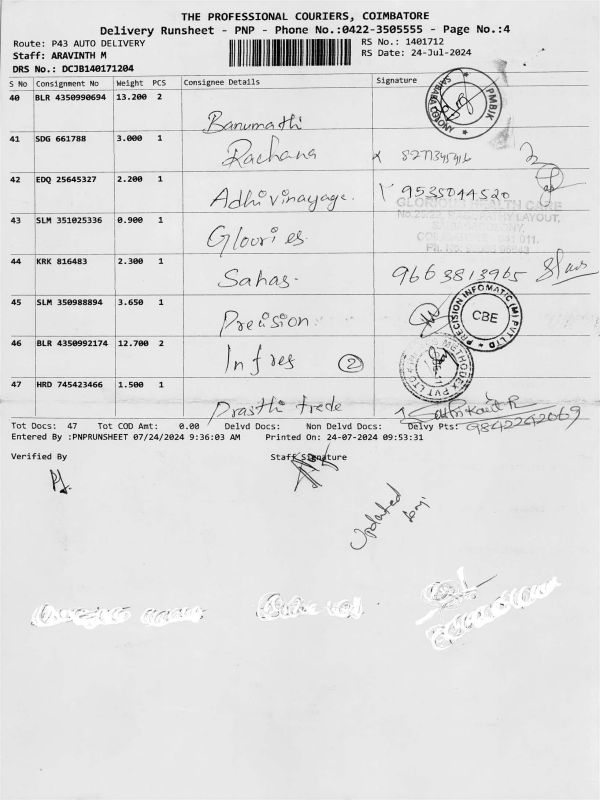 THE PROFESSIONAL COURIERS, COIMBATORE
Delivery Runsheet - PNP - Phone No.:0422-3505555 - Page No.:4
Route: P43 AUTO DELIVERY
RS No.: 1401712
Staff: ARAVINTH M
RS Date: 24-Jul-2024
DRS No.: DCJB140171204
S No Consignment No Weight PCS Consignee Details Signature
40 BLR 4350990694 13.200 2
Banumathi
PMBJK
41 SDG 661788 3.000 1
Rachana
42 EDQ 25645327 2.200 1
Adhivinayage. 9535044520
GLORIOUS HEALTH CARE
LAYOUT,
43 SLM 351025336 0.900 1
Glouries
44 KRK 816483 2.300 1
Sahas. 9663813965
45 SLM 350988894 3.650 1
Precision
PRECISION INFOMATIC (M) PVT LTD
CBE
46 BLR 4350992174 12.700 2
Infres 2
47 HRD 745423466 1.500 1
Prasthi trede
9842242069
Tot Docs: 47 Tot COD Amt: 0.00 Delvd Docs: Non Delvd Docs: Delvy Pts:
Entered By :PNPRUNSHEET 07/24/2024 9:36:03 AM Printed On: 24-07-2024 09:53:31
Verified By Staff Signature
Updated